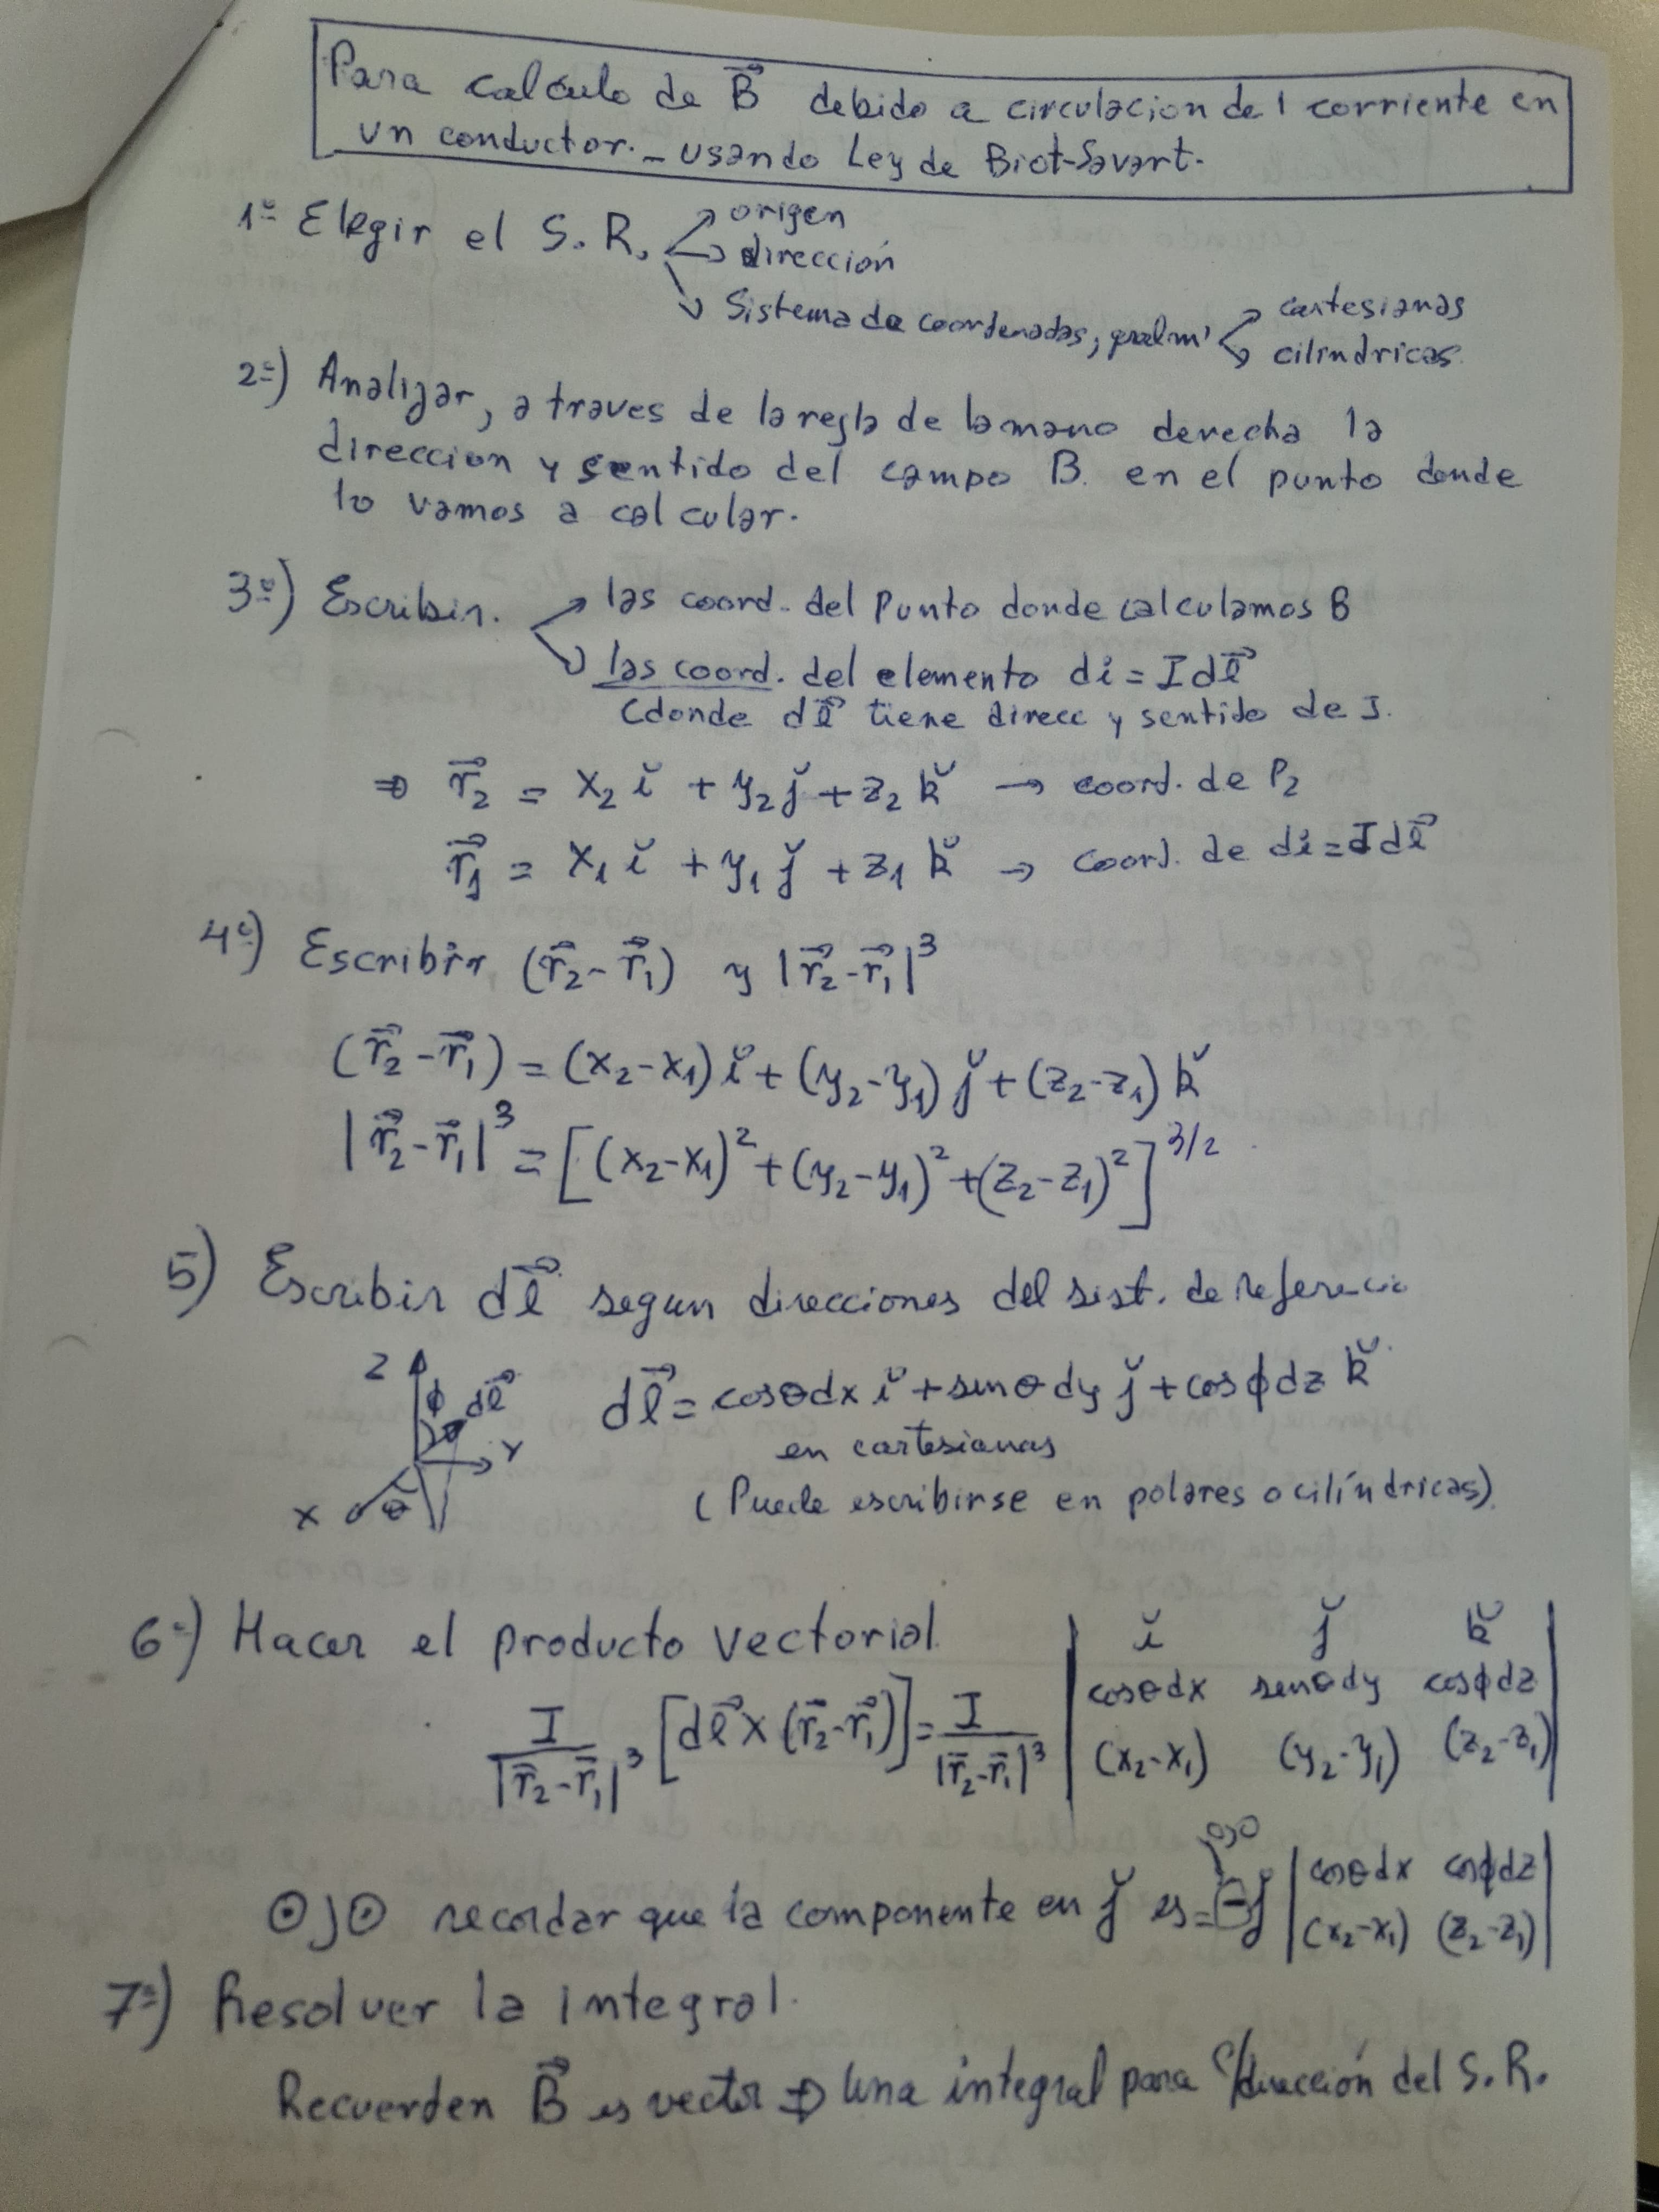 Para calculo de B⃗ debido a circulacion de 1 corriente en
un conductor. - usando Ley de Biot-Savart.
1º Elegir el S. R. → origen
→ dirección
→ Sistema de coordenadas, gralm' → cartesianas
→ cilindricas
2º) Analizar, a traves de la regla de la mano derecha la
direccion y sentido del campo B. en el punto donde
lo vamos a calcular.
3º) Escribir. → las coord. del Punto donde calculamos B
→ las coord. del elemento di = I dl⃗
(donde dl⃗ tiene direcc y sentido de I.
⇒ r⃗₂ = x₂ ǐ + y₂ ǰ + z₂ ǩ → coord. de P₂
r⃗₁ = x₁ ǐ + y₁ ǰ + z₁ ǩ → coord. de di = I dl⃗
4º) Escribir (r⃗₂ - r⃗₁) y |r⃗₂ - r⃗₁|³
(r⃗₂ - r⃗₁) = (x₂-x₁) ǐ + (y₂-y₁) ǰ + (z₂-z₁) ǩ
|r⃗₂ - r⃗₁|³ = [(x₂-x₁)² + (y₂-y₁)² + (z₂-z₁)²]^3/2
5) Escribir dl⃗ segun direcciones del sist. de referencia
Z ϕ dl⃗ Y X θ
dl⃗ = cosθ dx ǐ + senθ dy ǰ + cosϕ dz ǩ
en cartesianas
(Puede escribirse en polares o cilíndricas)
6º) Hacer el producto vectorial
I/|r⃗₂-r⃗₁|³ [dl⃗ x (r⃗₂-r⃗₁)] = I/|r⃗₂-r⃗₁|³ | ǐ ǰ ǩ |
| cosθdx senθdy cosϕdz |
| (x₂-x₁) (y₂-y₁) (z₂-z₁) |
ojo
OJO recordar que la componente en ǰ es = - ǰ | cosθdx cosϕdz |
| (x₂-x₁) (z₂-z₁) |
7º) Resolver la integral.
Recuerden B⃗ es vector ⇒ Una integral para c/dirección del S. R.